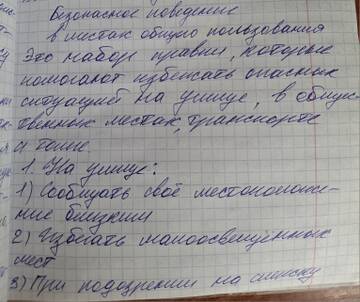 Безопасное поведение
в местах общего пользования
Это набор правил, которые
помогают избежать опасных
ситуаций на улице, в общес-
твенных местах, транспорте
и толпе.
1. На улице:
1) Сообщать своё местоположе-
ние близким
2) Избегать малоосвещённых
мест
3) При подозрении на слежку